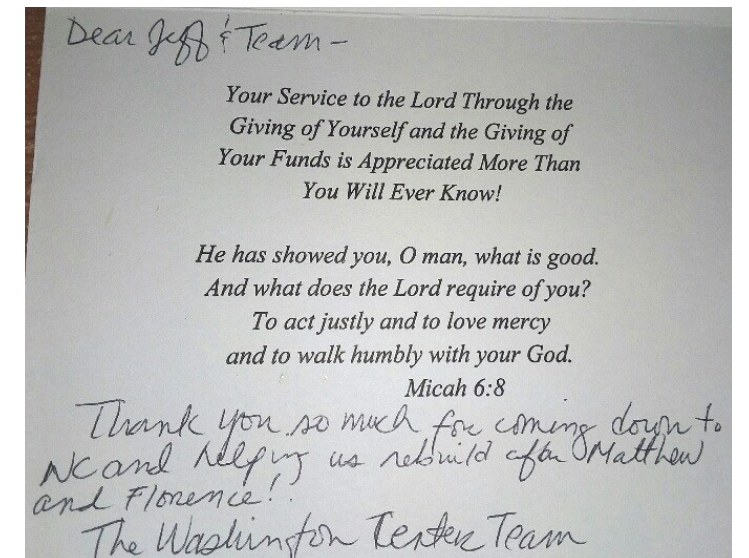 Dear Jeff & Team –
Your Service to the Lord Through the
Giving of Yourself and the Giving of
Your Funds is Appreciated More Than
You Will Ever Know!
He has showed you, O man, what is good.
And what does the Lord require of you?
To act justly and to love mercy
and to walk humbly with your God.
Micah 6:8
Thank you so much for coming down to
NC and helping us rebuild after Matthew
and Florence!
The Washington Center Team